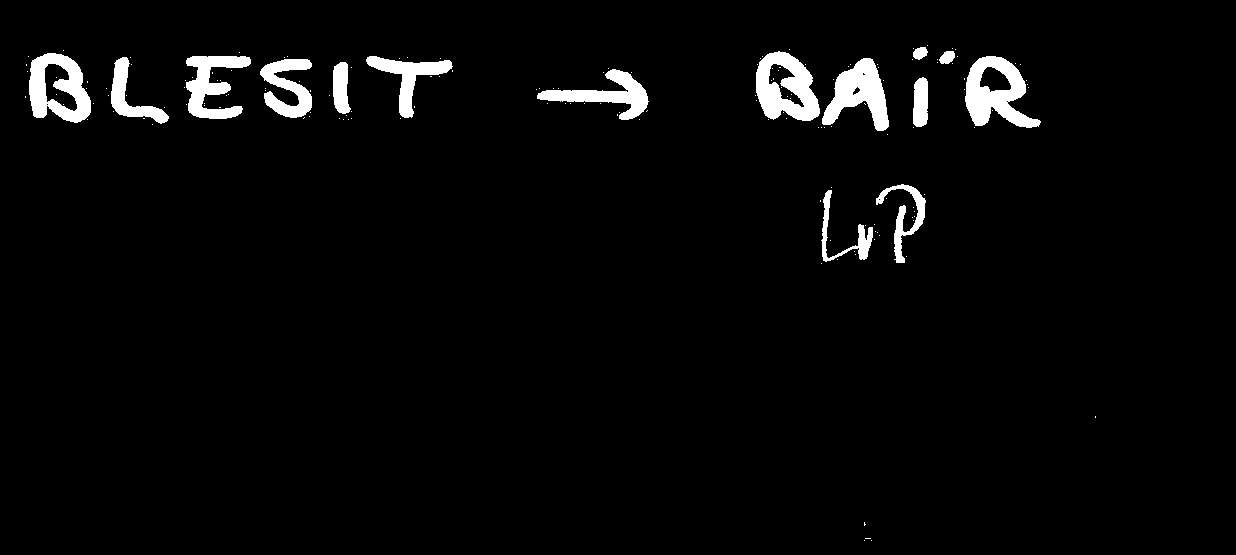 BLESIT → BAÏR
LVP